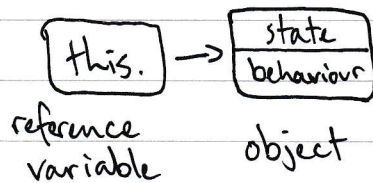 this.
state
behaviour
reference
variable
object